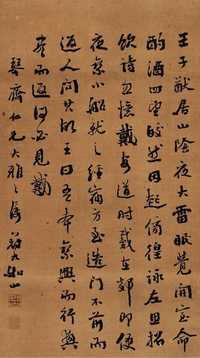 王子猷居山陰夜大雪眠覺開室命
酌酒四望皎然因起徬徨詠左思招
隱詩忽憶戴安道時戴在剡即便
夜乘小船就之經宿方至造門不前而
返人問其故王曰吾本乘興而行興
盡而返何必見戴
琴齋仁兄大雅之 如山